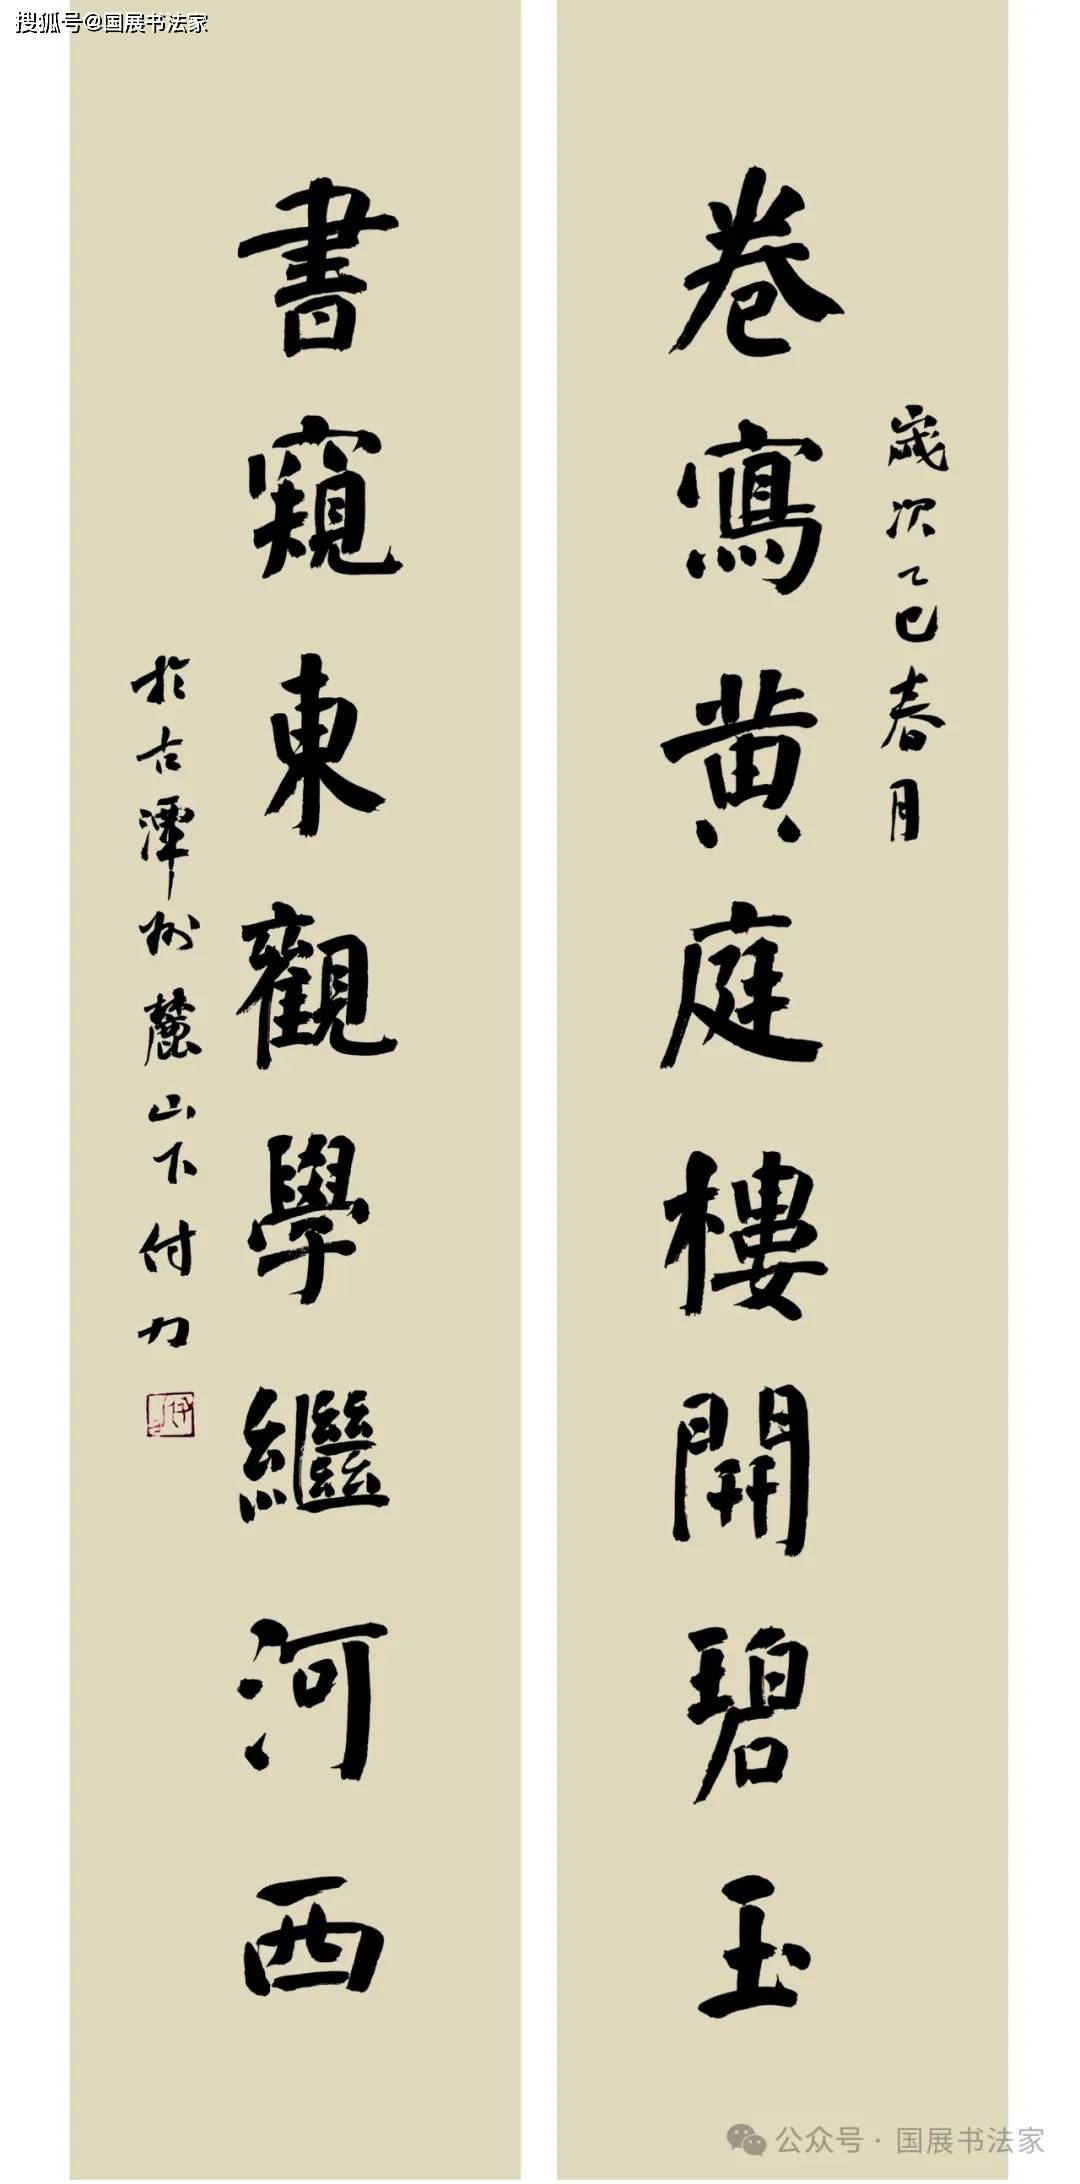 搜狐号@国展书法家
歲次乙巳春月
卷寫黄庭樓開碧玉
書窺東觀學繼河西
於古潭州麓山下付力
公众号·国展书法家